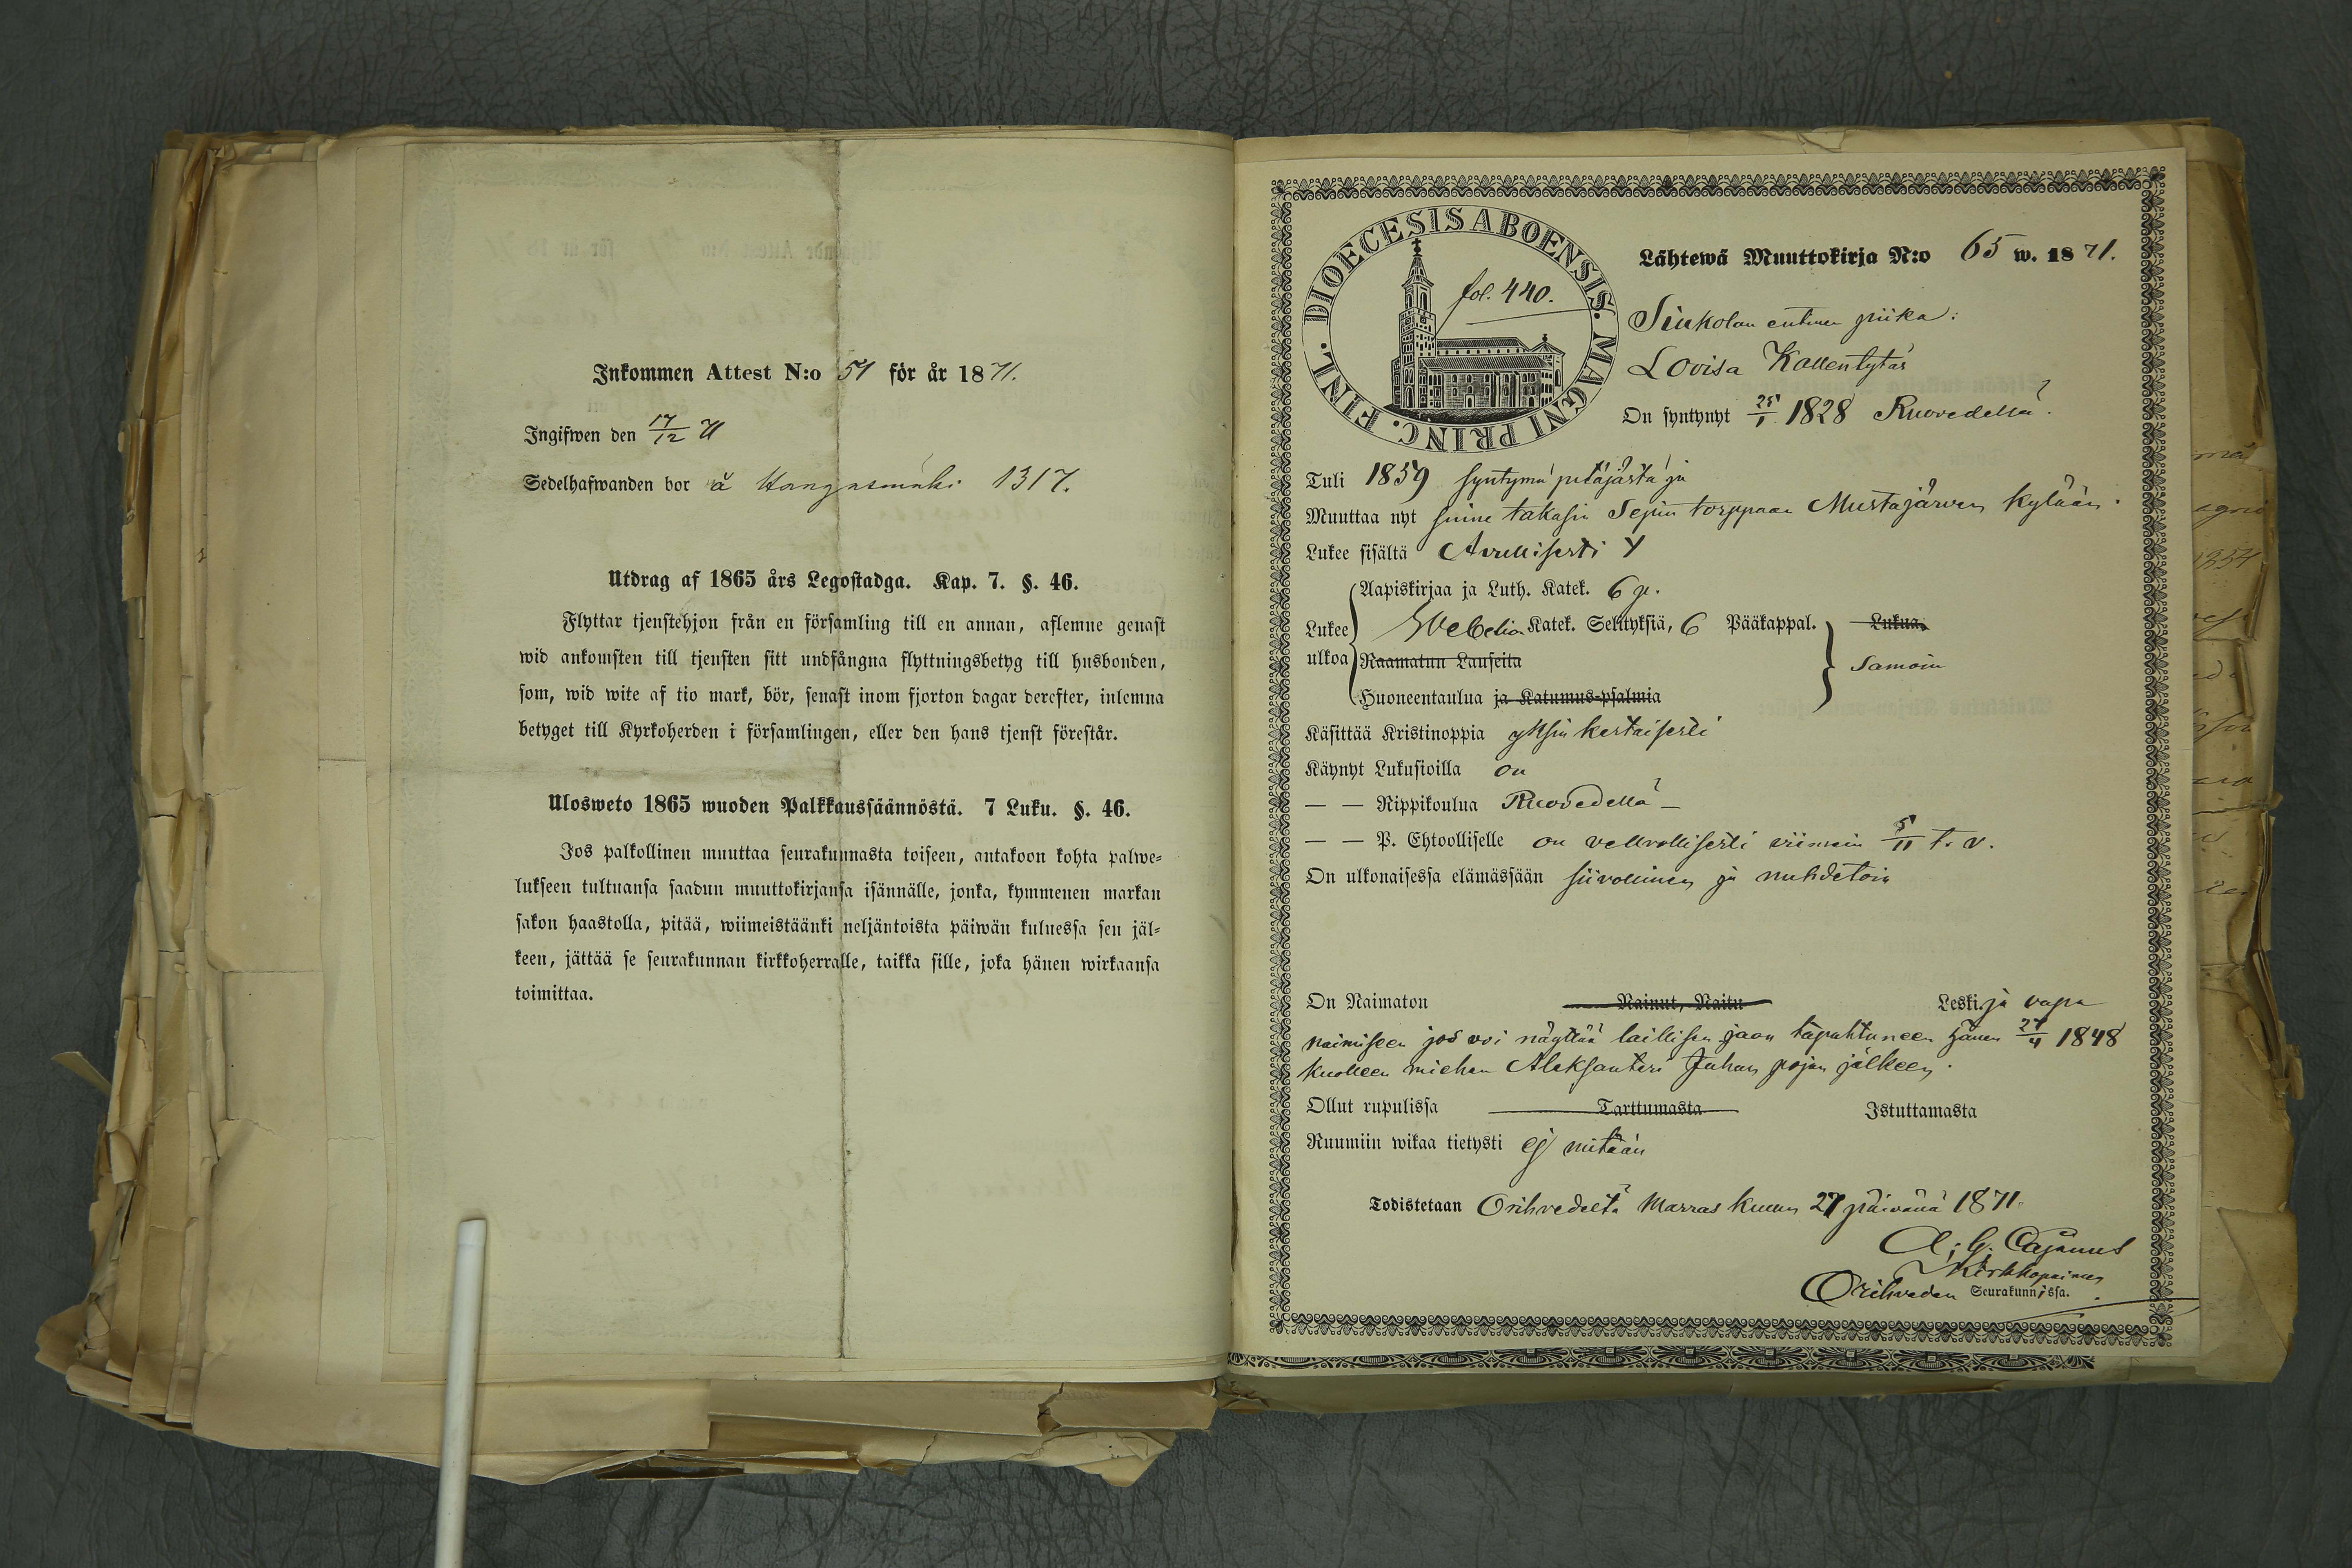 Inkommen Attest N:o 51 för år 1871.
Ingifwen den 17/12 71
Sedelhafwanden bor å Kangasmäki 1317.
Utdrag af 1865 års Legostadga. Kap. 7. §. 46.
Flyttar tjenstehjon från en församling till en annan, aflemne genast
wid ankomsten till tjensten sitt undfångna flyttningsbetyg till husbonden,
som, wid wite af tio mark, bör, senast inom fjorton dagar derefter, inlemna
betyget till Kyrkoherden i församlingen, eller den hans tjenst förestår.
Ulosweto 1865 wuoden Palkkaussäännöstä. 7 Luku. §. 46.
Jos palkollinen muuttaa seurakunnasta toiseen, antakoon kohta palwe-
lukseen tultuansa saadun muuttokirjansa isännälle, jonka, kymmenen markan
sakon haastolla, pitää, wiimeistäänki neljäntoista päiwän kuluessa sen jäl-
keen, jättää se seurakunnan kirkkoherralle, taikka sille, joka hänen wirkaansa
toimittaa.
DIOECESIS ABOENSIS. MAGNI PRINC. FINL.
fol. 440.
Lähtewä Muuttokirja N:o 65 w. 1871.
Siukolan entinen piika:
Lovisa Kallentytär
On syntynyt 25/1 1828 Ruovedellä.
Tuli 1859 syntymä pitäjästä ja
Muuttaa nyt sinne takasin Sepin torppaan Mustajärven kylään.
Lukee sisältä Avullisesti
Lukee ulkoa
Aapiskirjaa ja Luth. Katek. 6 p.
Svebelion Katek. Selityksiä, 6 Pääkappal. Lukua,
Raamatun Lauseita
Samoin
Huoneentaulua ja Katumus-psalmia
Käsittää Kristinoppia yksinkertaisesti
Käynyt Lukusioilla on
— — Rippikoulua Ruovedellä
— — P. Ehtoolliselle on velvollisesti viimein 5/11 t. v.
On ulkonaisessa elämässään siivollinen ja nuhdetoin
On Naimaton Nainut, Naitu Leski. ja vapa
naimiseen jos voi näyttää laillisen jaon tapahtuneen hänen 27/4 1848
kuolleen miehen Aleksanteri Juhan pojan jälkeen.
Ollut rupulissa Tarttumasta Istuttamasta
Ruumiin wikaa tietysti ej mitään
Todistetaan Orihvedellä Marras kuun 27 päivänä 1871.
A. G. Cajanus
Kirkkopaimen
Orihveden Seurakunnissa.